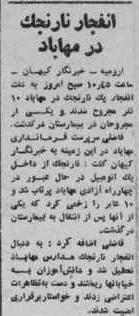 انفجار نارنجك
در مهاباد
ارومیه - خبرنگار کیهان -
ساعت ۱۰ر۴۵ صبح امروز به علت
انفجار یك نارنجك در مهاباد ۱۰
نفر مجروح شدند و یکی از
مجروحان در بیمارستان درگذشت.
فاضلی سرپرست فرمانداری
مهاباد در این زمینه به خبرنگار
کیهان گفت : نارنجك از داخل
یك اتومبیل در حال عبور در
چهارراه آزادی مهاباد پرتاب شد و
۱۰ عابر را زخمی کرد که یکی
از آنها پس از انتقال به بیمارستان
در گذشت.
فاضلی اضافه کرد : به دنبال
انفجار نارنجك مدارس مهاباد
تعطیل شد و دانش‌آموزان به
خیابانها ریختند و دست به تظاهرات
اعتراضی زدند و خواستار برقراری
امنیت شدند.